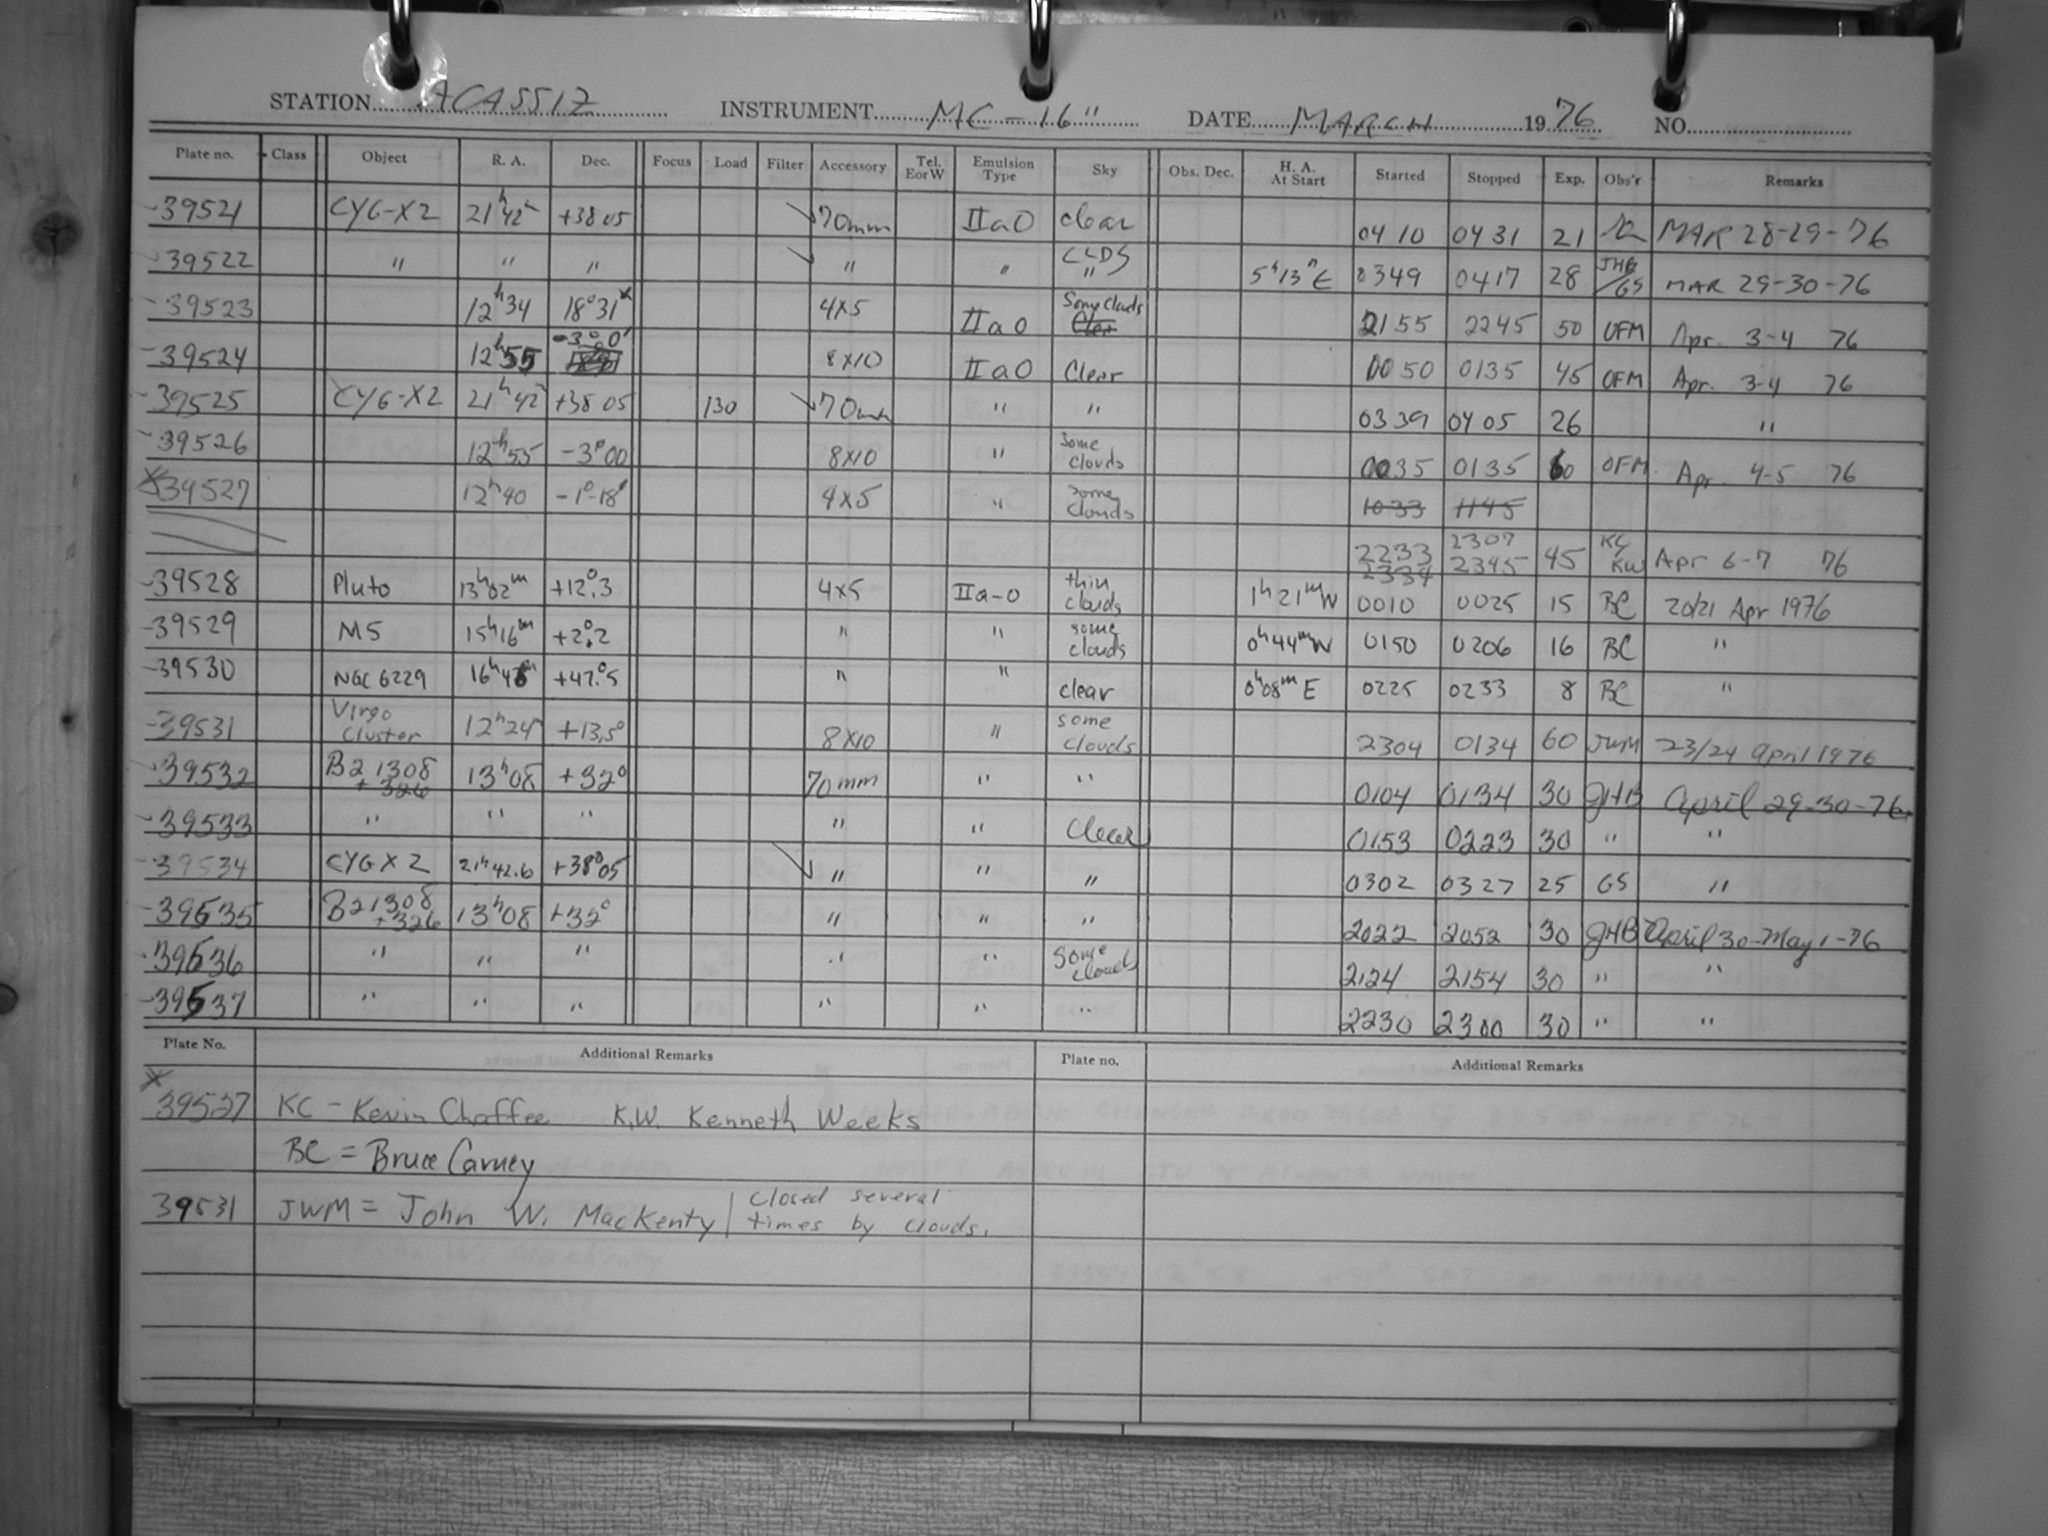 STATION AGASSIZ INSTRUMENT MC-16" DATE MARCH 1976 NO.
Plate no. Class Object R. A. Dec. Focus Load Filter Accessory Tel. E or W Emulsion Type Sky Obs. Dec. H. A. At Start Started Stopped Exp. Obs'r Remarks
39521 CYG-X2 21h42 +38 05 70mm IIaO clear 0410 0431 21 MAR 28-29-76
39522 " " " " " CLDS " 5h13mE 0349 0417 28 JHB/GS MAR 29-30-76
39523 12h34 18°31' 4x5 IIaO Some Clouds 2155 2245 50 OFM Apr. 3-4 76
39524 12h55 -3°0' 8x10 IIaO Clear 0050 0135 45 OFM Apr. 3-4 76
39525 CYG-X2 21h42 +38 05 130 70mm " " 0339 0405 26 "
39526 12h55 -3°00 8x10 " Some clouds 0035 0135 60 OFM Apr. 4-5 76
X39527 12h40 -1°-18' 4x5 " Some clouds 1033 1145
2233 2307
2334 2345 45 KC KW Apr 6-7 76
39528 Pluto 13h02m +12°.3 4x5 IIa-O thin clouds 1h21mW 0010 0025 15 BC 20/21 Apr 1976
39529 M5 15h16m +2°.2 " " some clouds 0h44mW 0150 0206 16 BC "
39530 NGC 6229 16h48m +47.°5 " " clear 0h08mE 0225 0233 8 BC "
39531 Virgo Cluster 12h24 +13.5° 8x10 " some clouds 2304 0134 60 JWM 23/24 April 1976
39532 B2 1308 +326 13h08 +32° 70mm " " 0104 0134 30 JHB April 29-30-76
39533 " " " " " Clear 0153 0223 30 " "
39534 CYG X2 21h42.6 +38°05 " " " 0302 0327 25 GS "
39535 B2 1308 +326 13h08 +32° " " " 2022 2052 30 JHB April 30-May 1-76
39536 " " " " " Some clouds 2124 2154 30 " "
39537 " " " " " " 2230 2300 30 " "
Plate No. Additional Remarks Plate no. Additional Remarks
X
39527 KC - Kevin Chaffee K.W. Kenneth Weeks
BC = Bruce Carney
39531 JWM = John W. MacKenty | Closed several times by clouds.